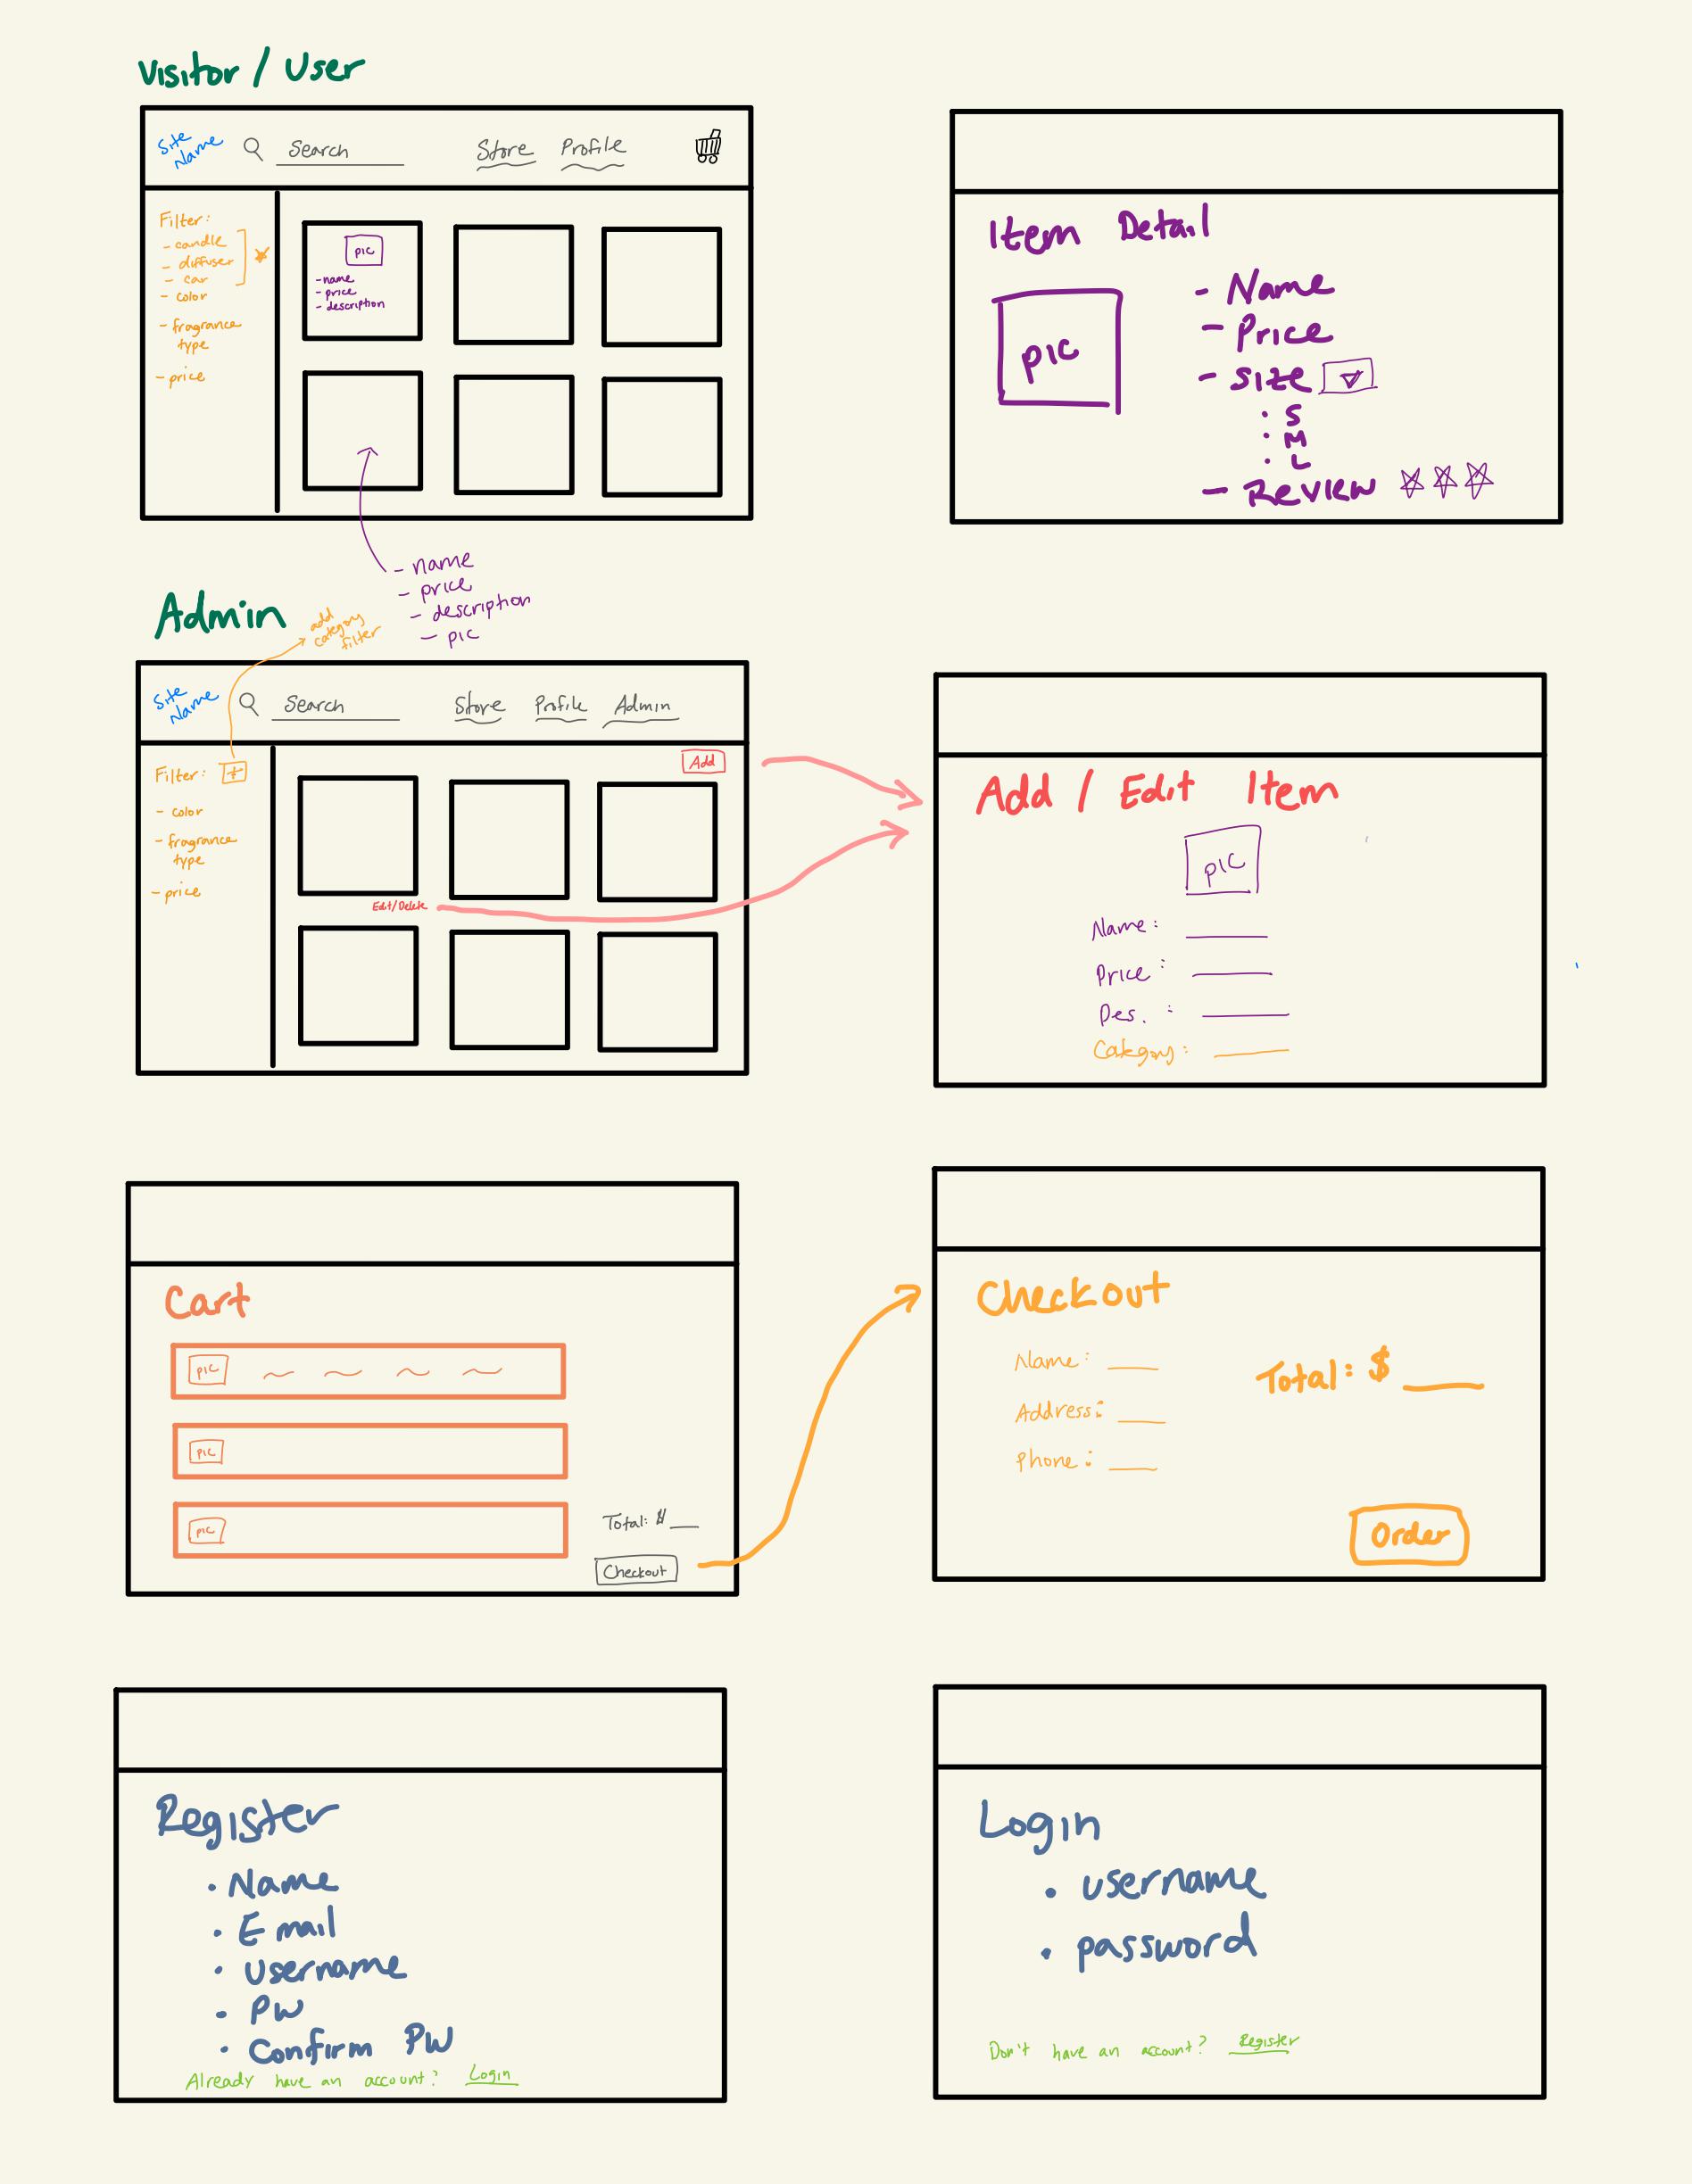 Visitor / User
Site Name
Search
Store
Profile
Filter:
- candle
- diffuser
- car
- color
- fragrance
type
- price
pic
- name
- price
- description
- name
- price
- description
- pic
Item Detail
pic
- Name
- Price
- Size
· S
· M
· L
- Review
Admin
add
category
filter
Site Name
Search
Store
Profile
Admin
Filter: +
- color
- fragrance
type
- price
Add
Edit/Delete
Add / Edit Item
pic
Name:
Price:
Des. :
Category:
Cart
pic
pic
pic
Total: $
Checkout
Checkout
Name:
Address:
Phone:
Total: $
Order
Register
· Name
· Email
· Username
· PW
· Confirm PW
Already have an account? Login
Login
· username
· password
Don't have an account? Register